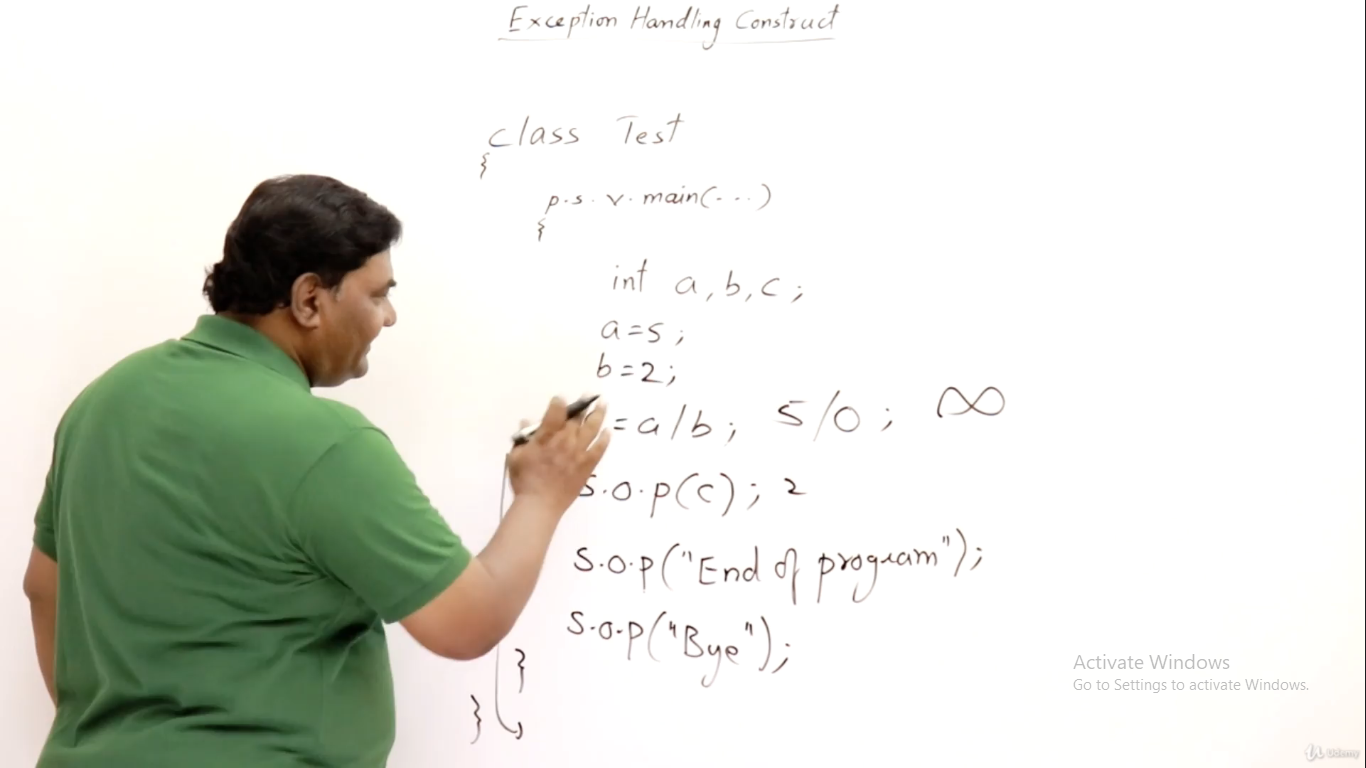 Exception Handling Construct
class Test
{
p.s.v.main(...)
{
int a,b,c;
a=5;
b=2;
=a/b; 5/0; ∞
S.O.P(c); 2
S.O.P("End of program");
S.O.P("Bye");
}
}
Activate Windows
Go to Settings to activate Windows.
Udemy